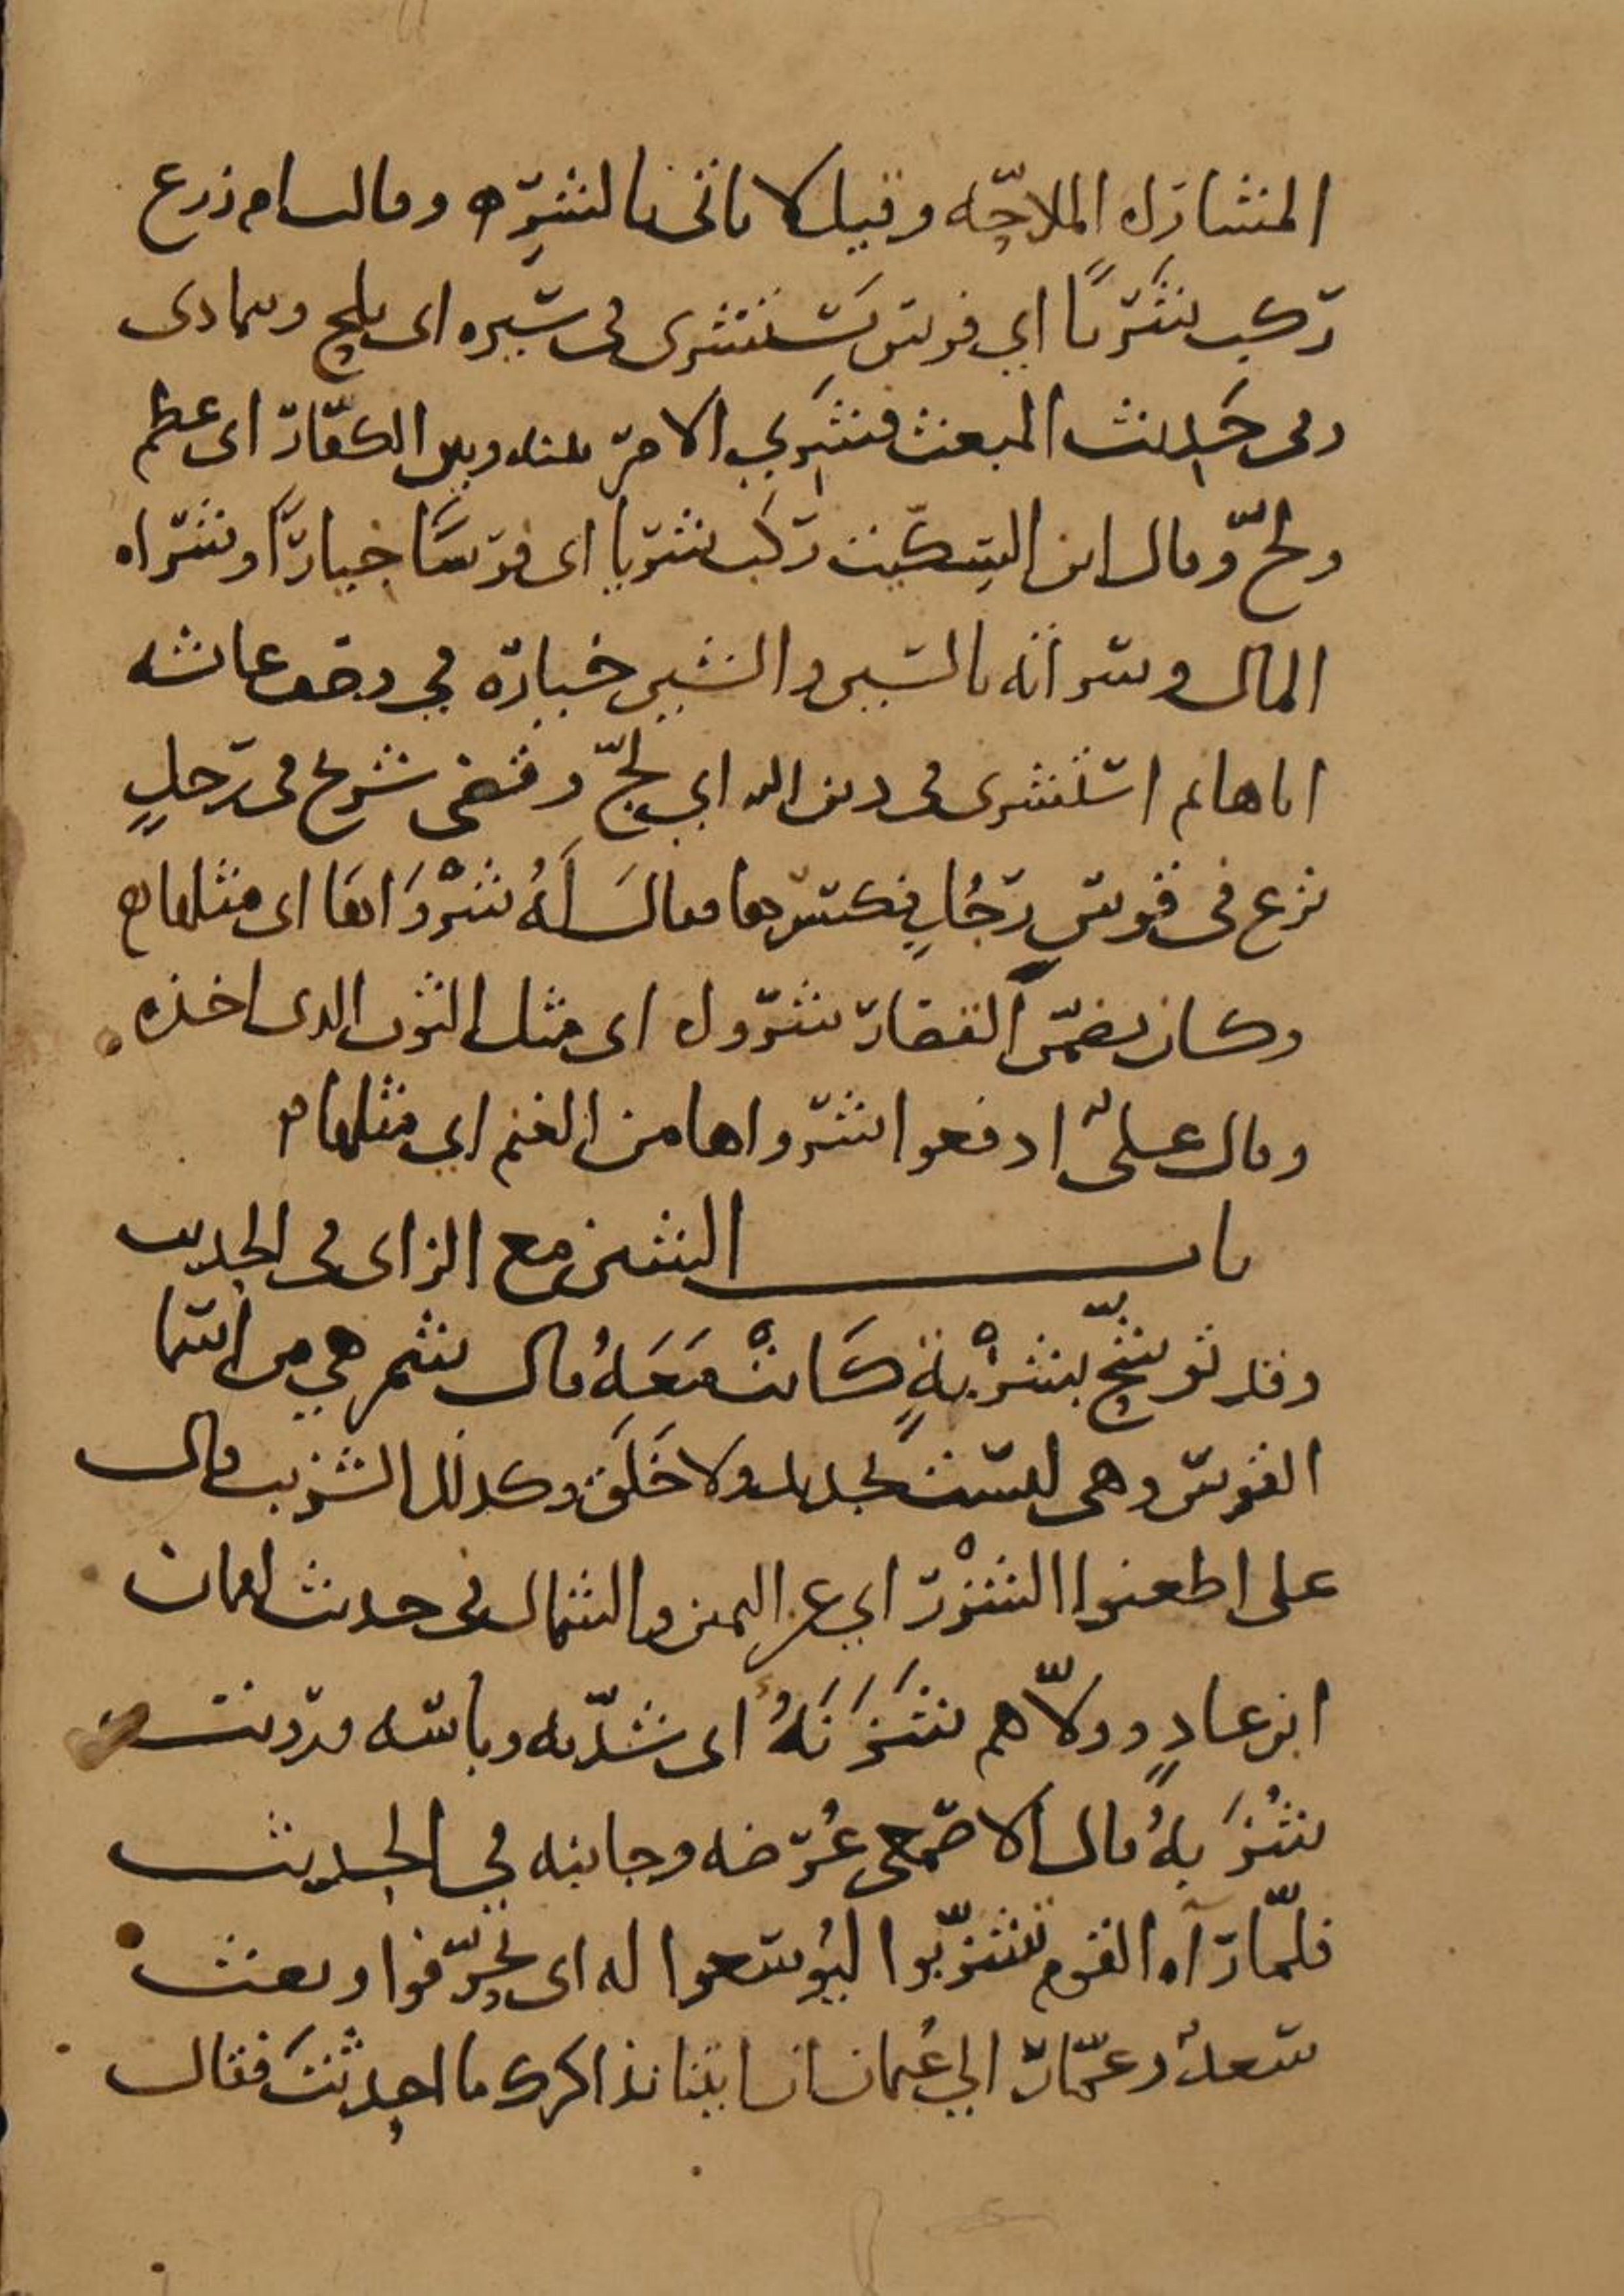 المشاراه الملاجّه وقيل لا ياتي بالشرّ ه وقالت ام زرع
ركب شَريًّا اي فرس يَستشرى في سيره اى يلج ويمادى
وفى حَديث المبعث فشَرِي الامر بينه وبين الكفّار اى عظم
ولجّ وقال ابن السكّيت ركب شريا اى فرسًا خيارًا وشراه
المال وسراته بالسين والشين خياره في وصف عائشه
اباها ثم استشرى فى دين الله اي لجّ وقضى شريح فى رجلٍ
نزع فى قوس رجُلٍ فكسرها فقال لَهُ شَرْوَاهَا اى مثلها ه
وكان يضمّن القصّار شروا ه اى مثل الثوب الذى اخذه
وقال علىّ ادفعوا شرواها من الغنم اي مثلها ه
باب الشين مع الزاى فى الحديث
وقد توشّح بشَزْبةٍ كَانتْ مَعَهُ قال شمر هي من اسما
القوس وهى ليست بجديد ولا خَلَق وكذلك الشزيب قال
على اطعنوا الشزْر اي عن اليمين والشمال فى حديث لقمان
ابن عادٍ وولّاهم شَزَنَهُ اى شدّته وباسه ورويت
شُزَنهُ قال الاصمعى عُرضه وجانبه في الحديث
فلمّا رآه القوم تشزّنوا ليُوسعوا له اى تحرّفوا وبعث
سعدٌ وعمّار الي عُثمان ان ايتنا نذاكرك ما احدثتَ فقال